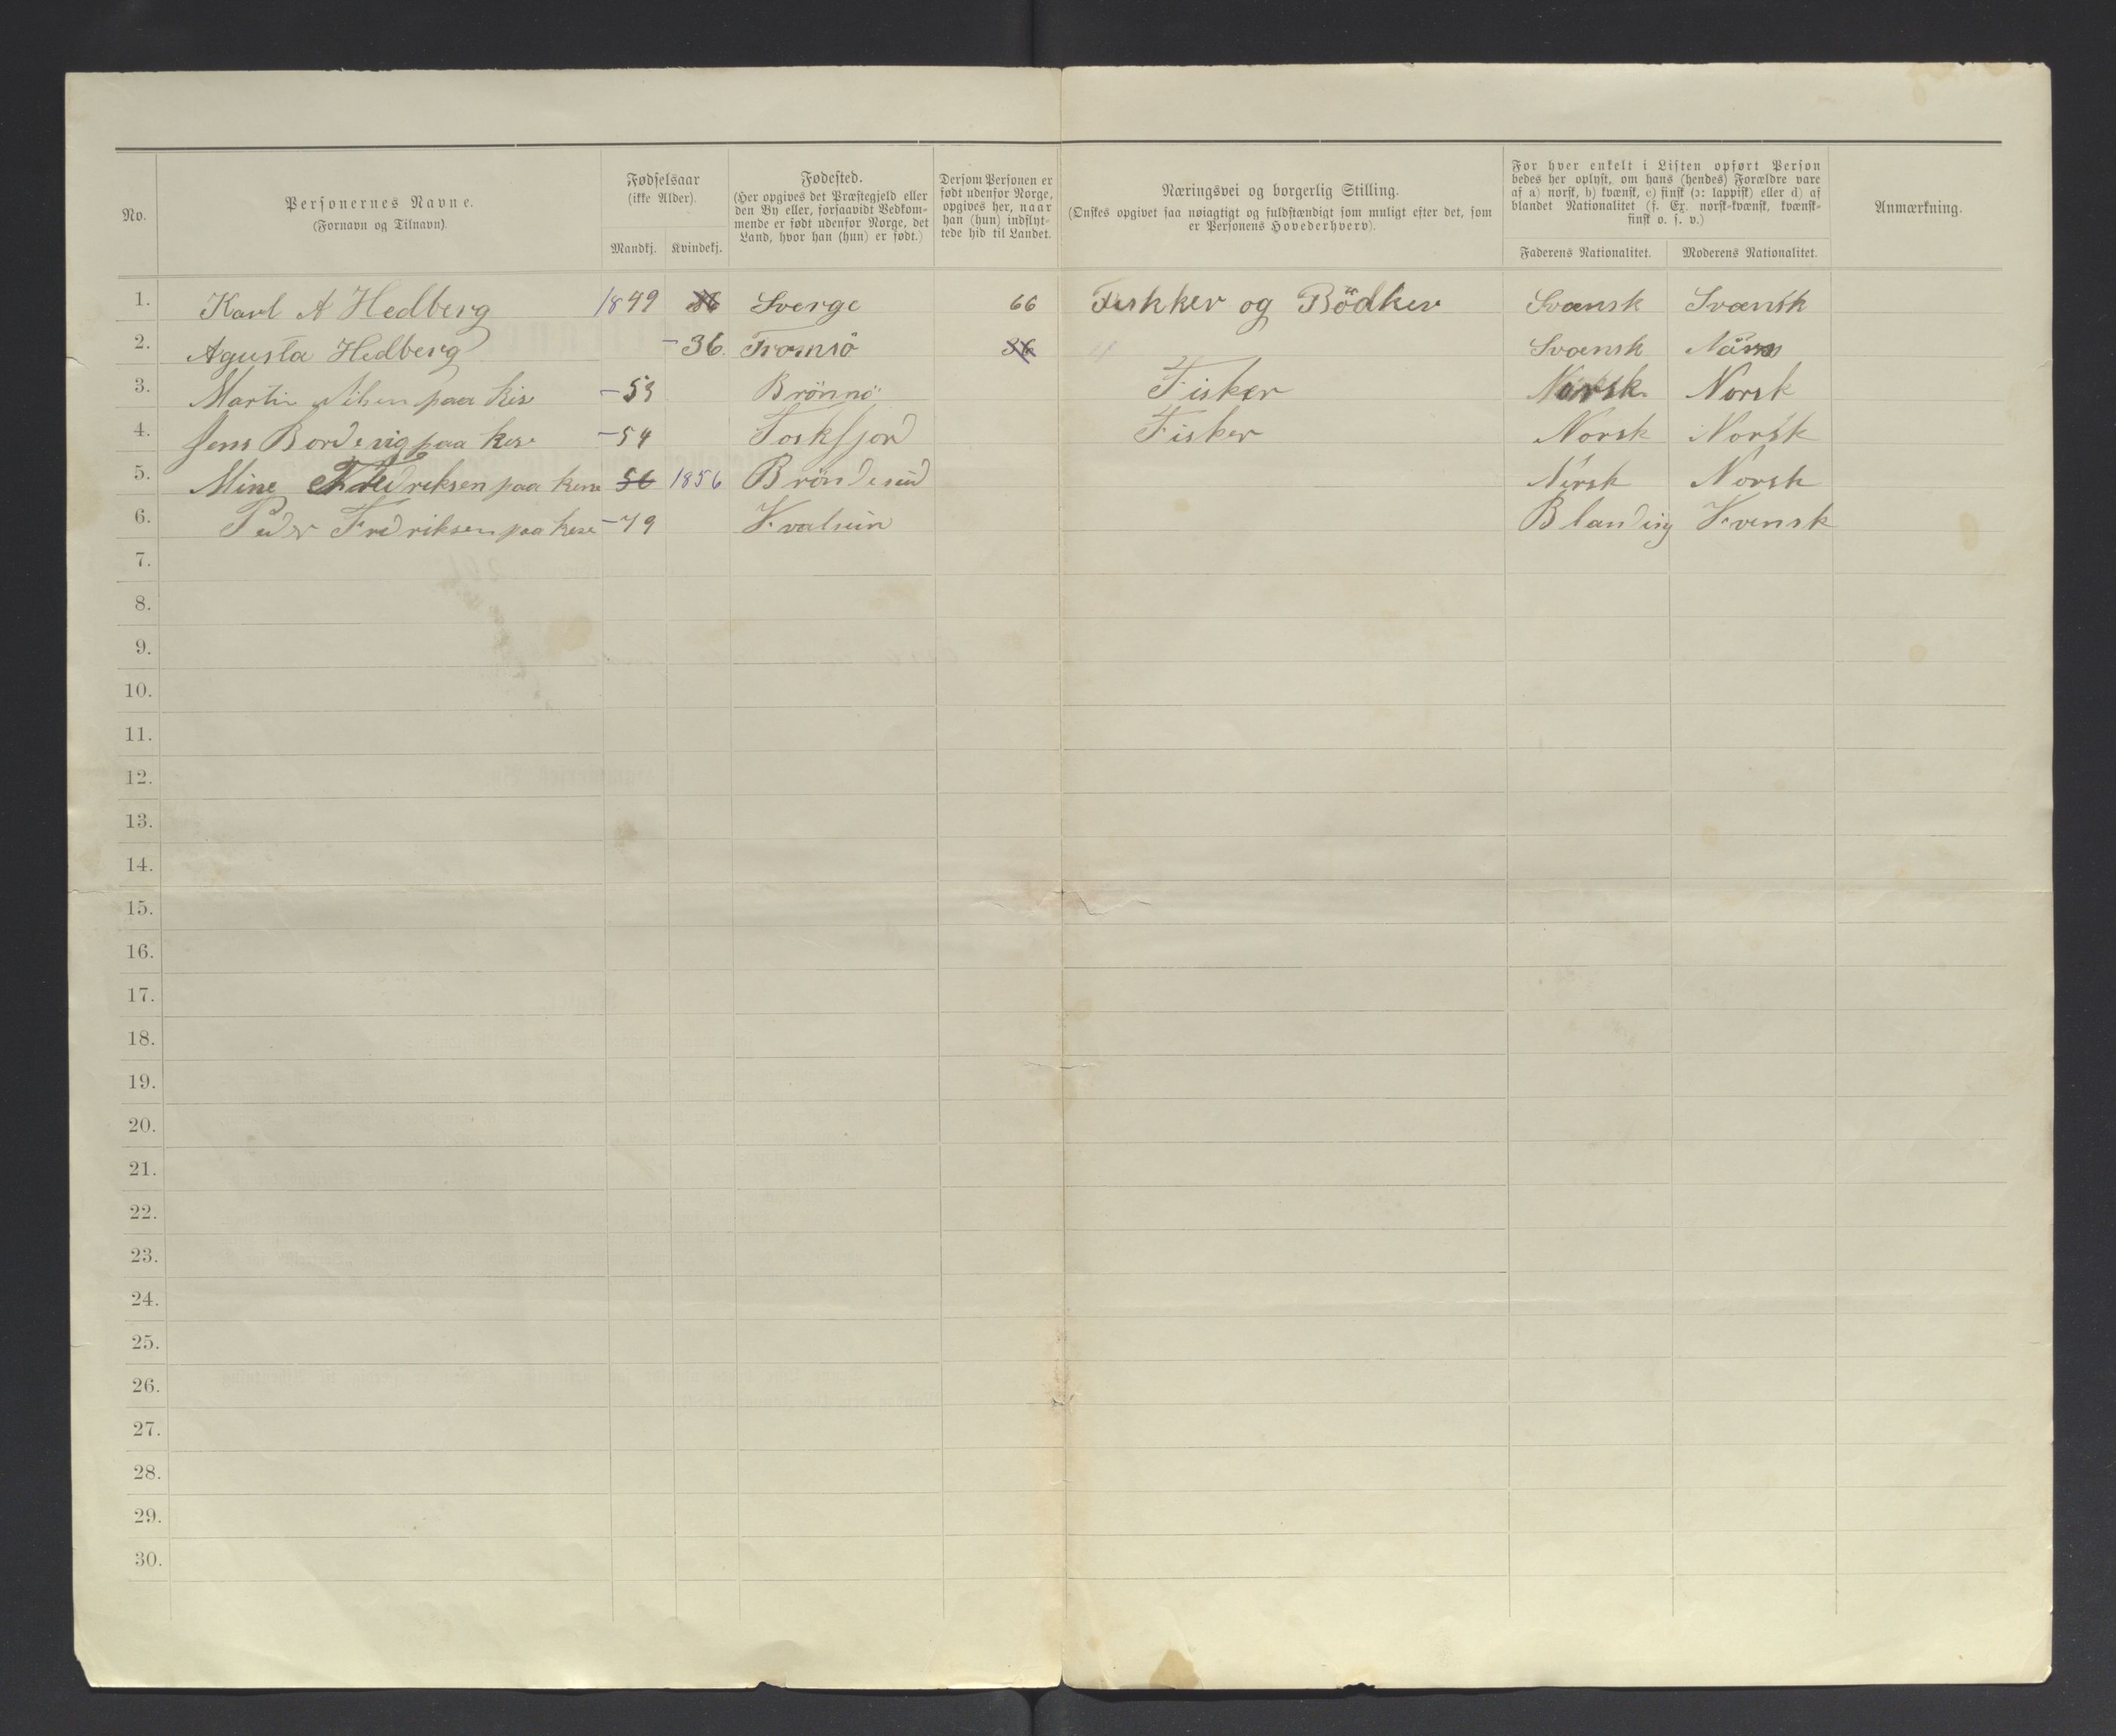 No.
Personernes Navne.
(Fornavn og Tilnavn).
Fødselsaar
(ikke Alder).
Mandkj. Kvindekj.
Fødested.
(Her opgives det Præstegjeld eller
den By eller, forsaavidt Vedkom-
mende er født udenfor Norge, det
Land, hvor han (hun) er født.)
Dersom Personen er
født udenfor Norge,
opgives her, naar
han (hun) indflyt-
tede hid til Landet.
Næringsvei og borgerlig Stilling.
(Ønskes opgivet saa nøiagtigt og fuldstændigt som muligt efter det, som
er Personens Hovederhverv).
For hver enkelt i Listen opført Person
bedes her oplyst, om hans (hendes) Forældre vare
af a) norsk, b) kvænsk, c) finsk (ɔ: lappisk) eller d) af
blandet Nationalitet (f. Ex. norsk-kvænsk, kvænsk-
finsk o. s. v.)
Faderens Nationalitet. Moderens Nationalitet.
Anmærkning.
1. Karl A Hedberg 1849 36 Sverge 66 Fishker og Bödker Svænsk Svænsk
2. Agusta Hedberg - 36 Tromsö 36 Svænsk
3. Martin paa - 53 Brönnö Fisker Norsk Norsk
4. Jens paa - 54 Fisker Norsk Norsk
5. Mine Fredreksen paa 56 1856 Bröndesund Norsk Norsk
6. Peder Fredriksen paa - 79 Kvalsun Blanding Kvensk
7.
8.
9.
10.
11.
12.
13.
14.
15.
16.
17.
18.
19.
20.
21.
22.
23.
24.
25.
26.
27.
28.
29.
30.